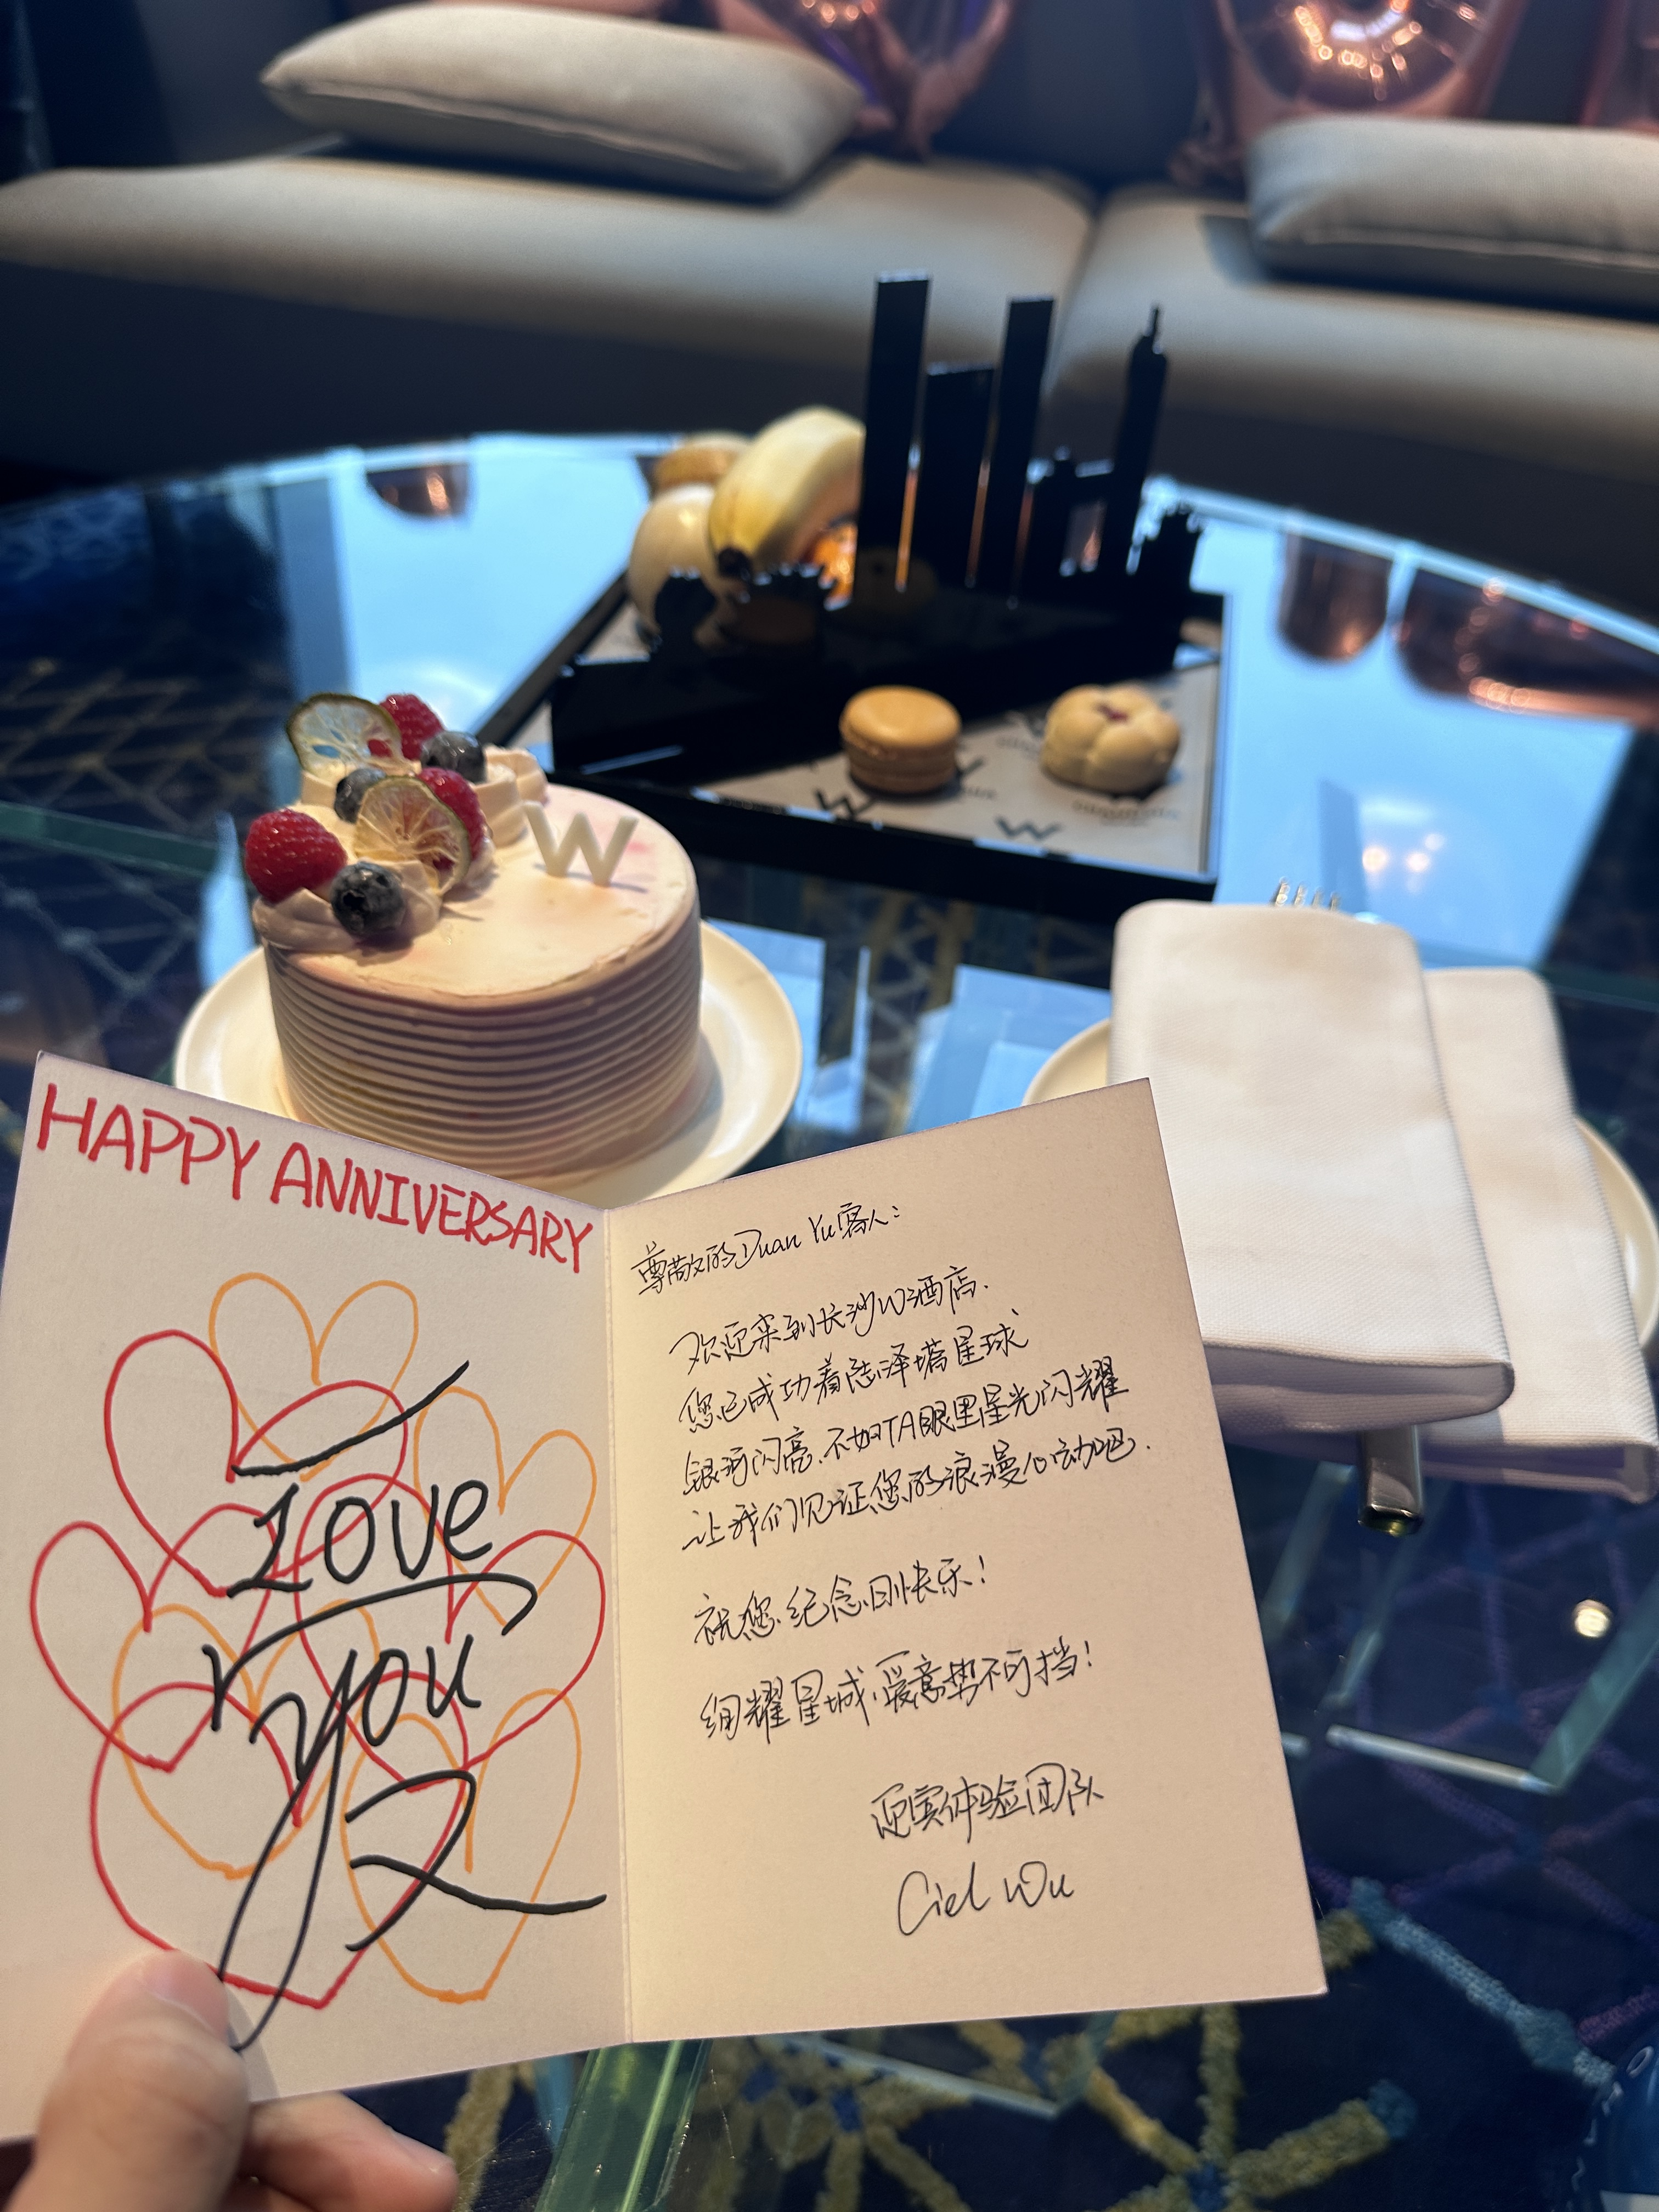 HAPPY ANNIVERSARY
I
Love
you
尊敬的Duan Yu客人:
欢迎来到长沙W酒店.
您已成功着陆泽塔星球
银河闪亮.不如TA眼里星光闪耀
让我们见证您的浪漫心动吧.
祝您纪念日快乐!
绚耀星城,爱意势不可挡!
迎宾体验团队
Ciel Wu
W
W
W